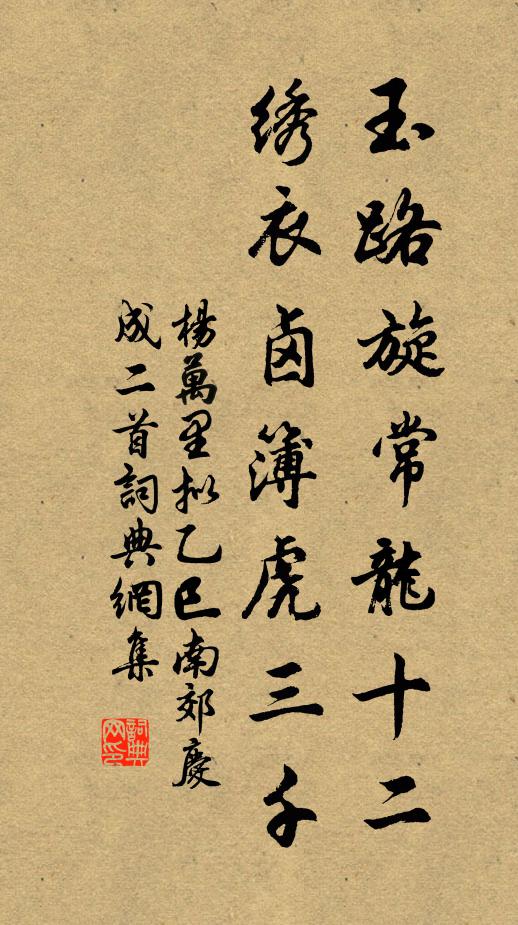 玉路旋常龍十二
绣衣卤簿虎三千
楊萬里拟乙巳南郊慶
成二首詞典網集
詞典网印